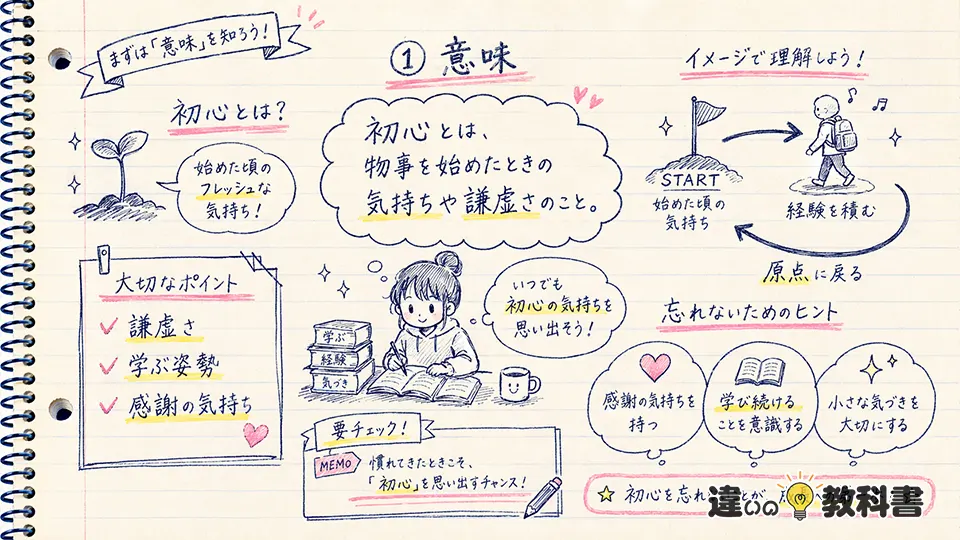 まずは「意味」を知ろう!
① 意味
イメージで理解しよう!
初心とは?
始めた頃の
フレッシュな
気持ち!
初心とは、
物事を始めたときの
気持ちや謙虚さのこと。
START
始めた頃の
気持ち
経験を積む
原点に戻る
大切なポイント
✓ 謙虚さ
✓ 学ぶ姿勢
✓ 感謝の気持ち
学ぶ
経験
気づき
いつでも
初心の気持ちを
思い出そう!
忘れないためのヒント
感謝の気持ちを
持つ
学び続ける
ことを意識する
小さな気づきを
大切にする
要チェック!
MEMO
慣れてきたときこそ、
「初心」を思い出すチャンス!
☆ 初心を忘れ
違いの教科書